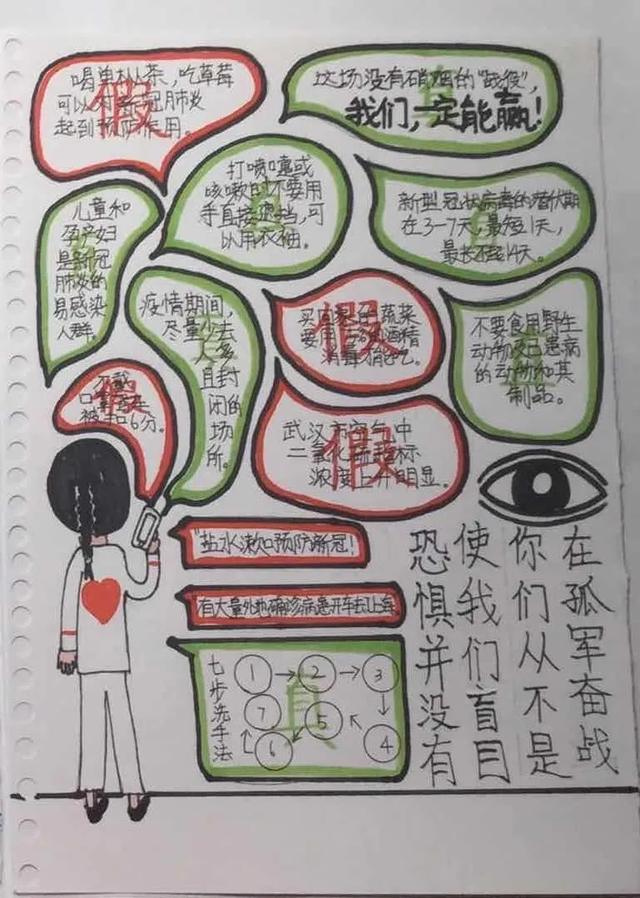 喝单枞茶,吃草莓
可以对新冠肺炎
起到预防作用。
假
这场没有硝烟的“战役”,
我们,一定能赢!
儿童和
孕产妇
是新冠
肺炎的
易感染
人群。
打喷嚏或
咳嗽时不要用
手直接遮挡,可
以用衣袖。
新型冠状病毒的潜伏期
在3-7天,最短1天,
最长不超14天。
疫情期间,
尽量少去
人多
且封
闭的
场
所。
买回家的蔬菜
要用酒精
消毒才能吃。
假
不要食用野生
动物及已患病
的动物和其
制品。
不戴
口罩
被扣6分。
假
武汉市空气中
二氧化硫超标
浓度上升明显。
假
“盐水漱口预防新冠!
有大量外地确诊病患开车去上海
七步洗手法
真
1
2
3
4
5
6
7
在孤军奋战
你们从不是
使我们盲目
恐惧并没有